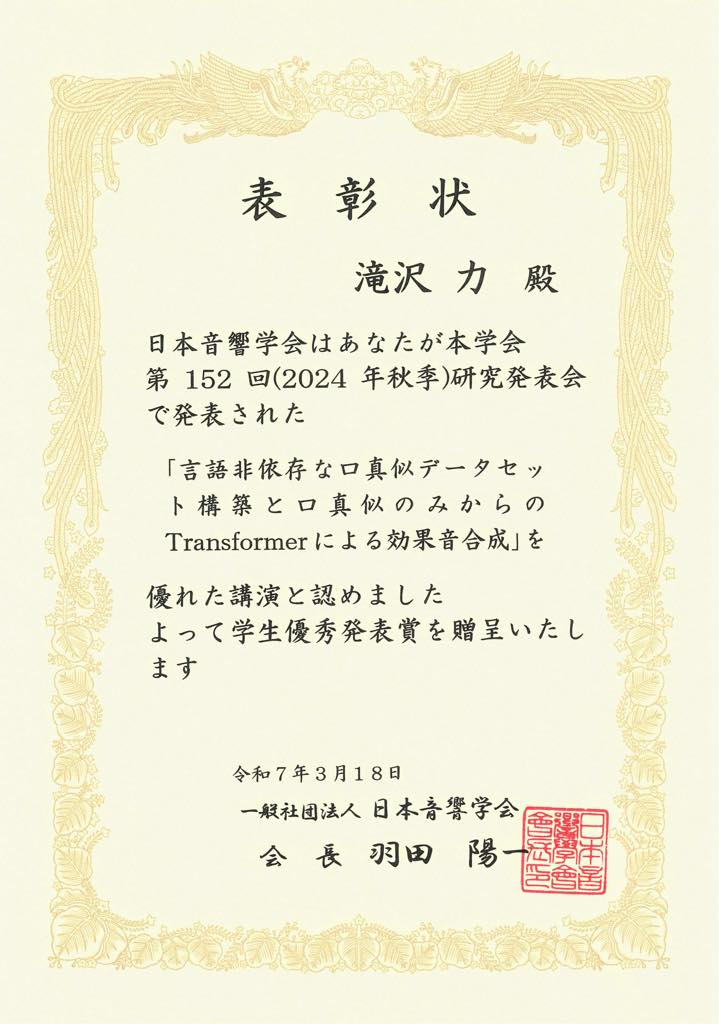 表彰状
滝沢 力 殿
日本音響学会はあなたが本学会
第 152 回(2024 年秋季)研究発表会
で発表された
「言語非依存な口真似データセッ
ト構築と口真似のみからの
Transformerによる効果音合成」を
優れた講演と認めました
よって学生優秀発表賞を贈呈いたし
ます
令和７年３月１８日
一般社団法人 日本音響学会
会 長 羽田 陽一